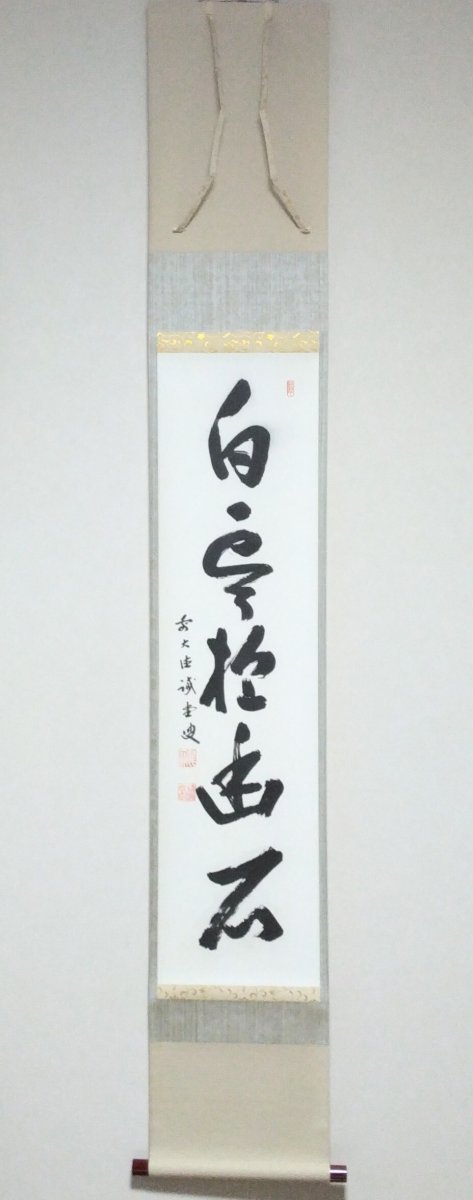 白雲抱幽石
前大徳誠堂叟